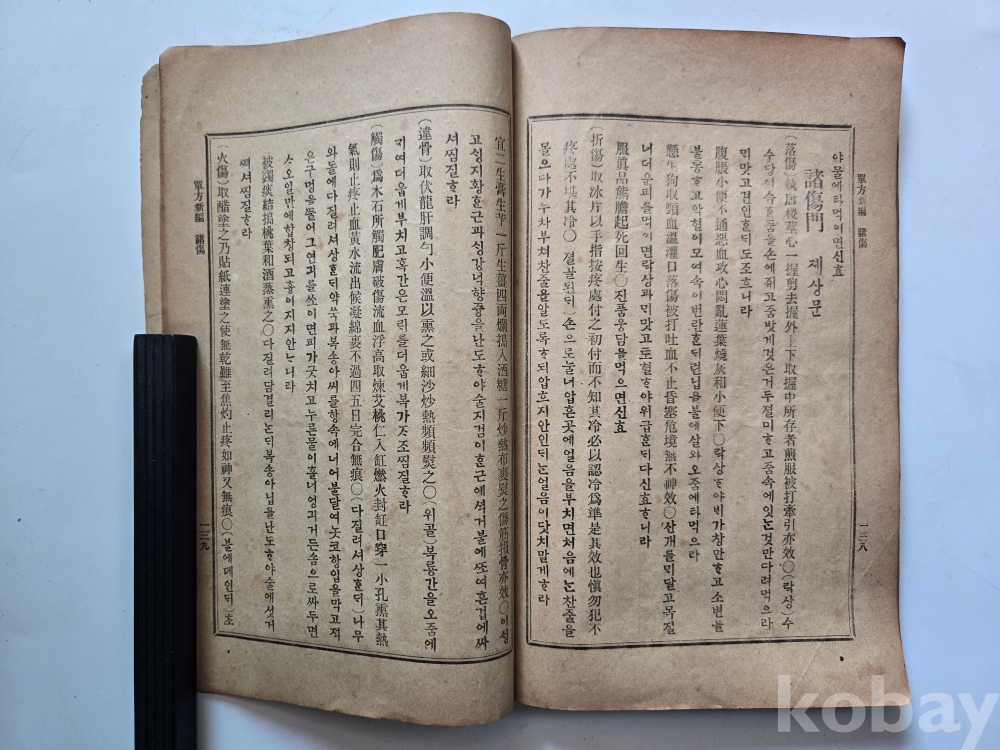 單方新編 諸傷
一三八
야물에타먹이면신효
諸傷門 제상문
(落傷)蜀黍稷莖心一握剪去握外上下取握中所存者煎服被打牽引亦效○(락상)수
수당이속호줌을손에쥐고줌밧게것은거두졀미하고줌속에잇는것만다려먹으라
미맛고견인흔되도조흐니라
腹脹小便不通惡血攻心悶亂蓮葉燒灰和小便下○락상하야비가창만하고소변불
불통하고악혈이모여속이번란흔되련닙을불에살와오줌에타먹으라
懸生狗取頸血溫灌口落傷被打吐血不止昏塞危境無不神效○산개를미달고목질
너더운피를먹이면락상과미맛고토혈하야위급흔되다신효하니라
服眞品熊膽起死回生○진품웅담을먹으면신효
(折傷)取冰片以手指按疼處付之初付而不知其冷必以認冷爲準是其效也愼勿犯不
疼處不堪其冷○졀골된되손으로눌너압흔곳에얼음을부치면처음에는찬줄을
몰으다가누차부쳐찬줄을알도록하되압흐지안인되는얼음이닷치말게하라
單方新編 諸傷
一三九
宜二生膏生芐一斤生薑四兩爛搗入酒糖一斤炒熱布裹熨之傷筋損骨亦效○이싱
고싱지황흔근과싱강넉량중을난도하야술지검이흔근에셔거불에또여흔겁에싸
셔찜질하라
(違骨)取伏龍肝調勻小便溫以熏之或細沙炒熱頻頻熨之○(위골)복룡간을오줌에
기여더웁게부치고혹간은모릭를더웁게복가조조찜질하라
(觸傷)爲木石所觸肥膚破傷流血浮高取煉艾桃仁入缸燃火封缸口穿一小孔熏其熱
氣則止疼止血黃水流出候凝綿裹不過四五日完合無痕○(다질려셔상흔되)나무
와돌에다질려셔상흔되약쑥과복숑아씨를항속에너어불달여놋코항입을막고젹
은구멍을뚤어그연긔를쏘이면피가굿치고누른물이흘너엉긔거든솜으로싸두면
사오일만에합창되고흉이지지안느니라
被觸痰結搗桃葉和酒蒸熏之○다질려담결리는되복숑아닙을난도하야술에셧거
쪄셔찜질하라
(火傷)取醋塗之乃貼紙連塗之使無乾雖至焦灼止疼如神又無痕○(불에데인되)초
kobay